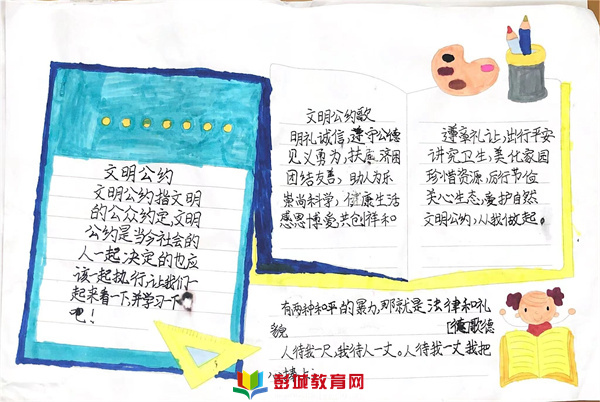 文明公约
文明公约指文明
的公众约定,文明
公约是当今社会的
人一起决定的也应
该一起执行,让我们一
起来看一下,并学习一下
吧!
文明公约歌
明礼诚信,遵守公德
见义勇为,扶危济困
团结友善,助人为乐
崇尚科学,健康生活
感恩博爱共创祥和
遵章礼让,出行平安
讲究卫生,美化家园
珍惜资源,厉行节俭
关心生态,爱护自然
文明公约,从我做起。
有两种和平的暴力,那就是法律和礼
貌
歌德
人待我一尺,我待人一丈。人待我一丈我把
彭城教育网